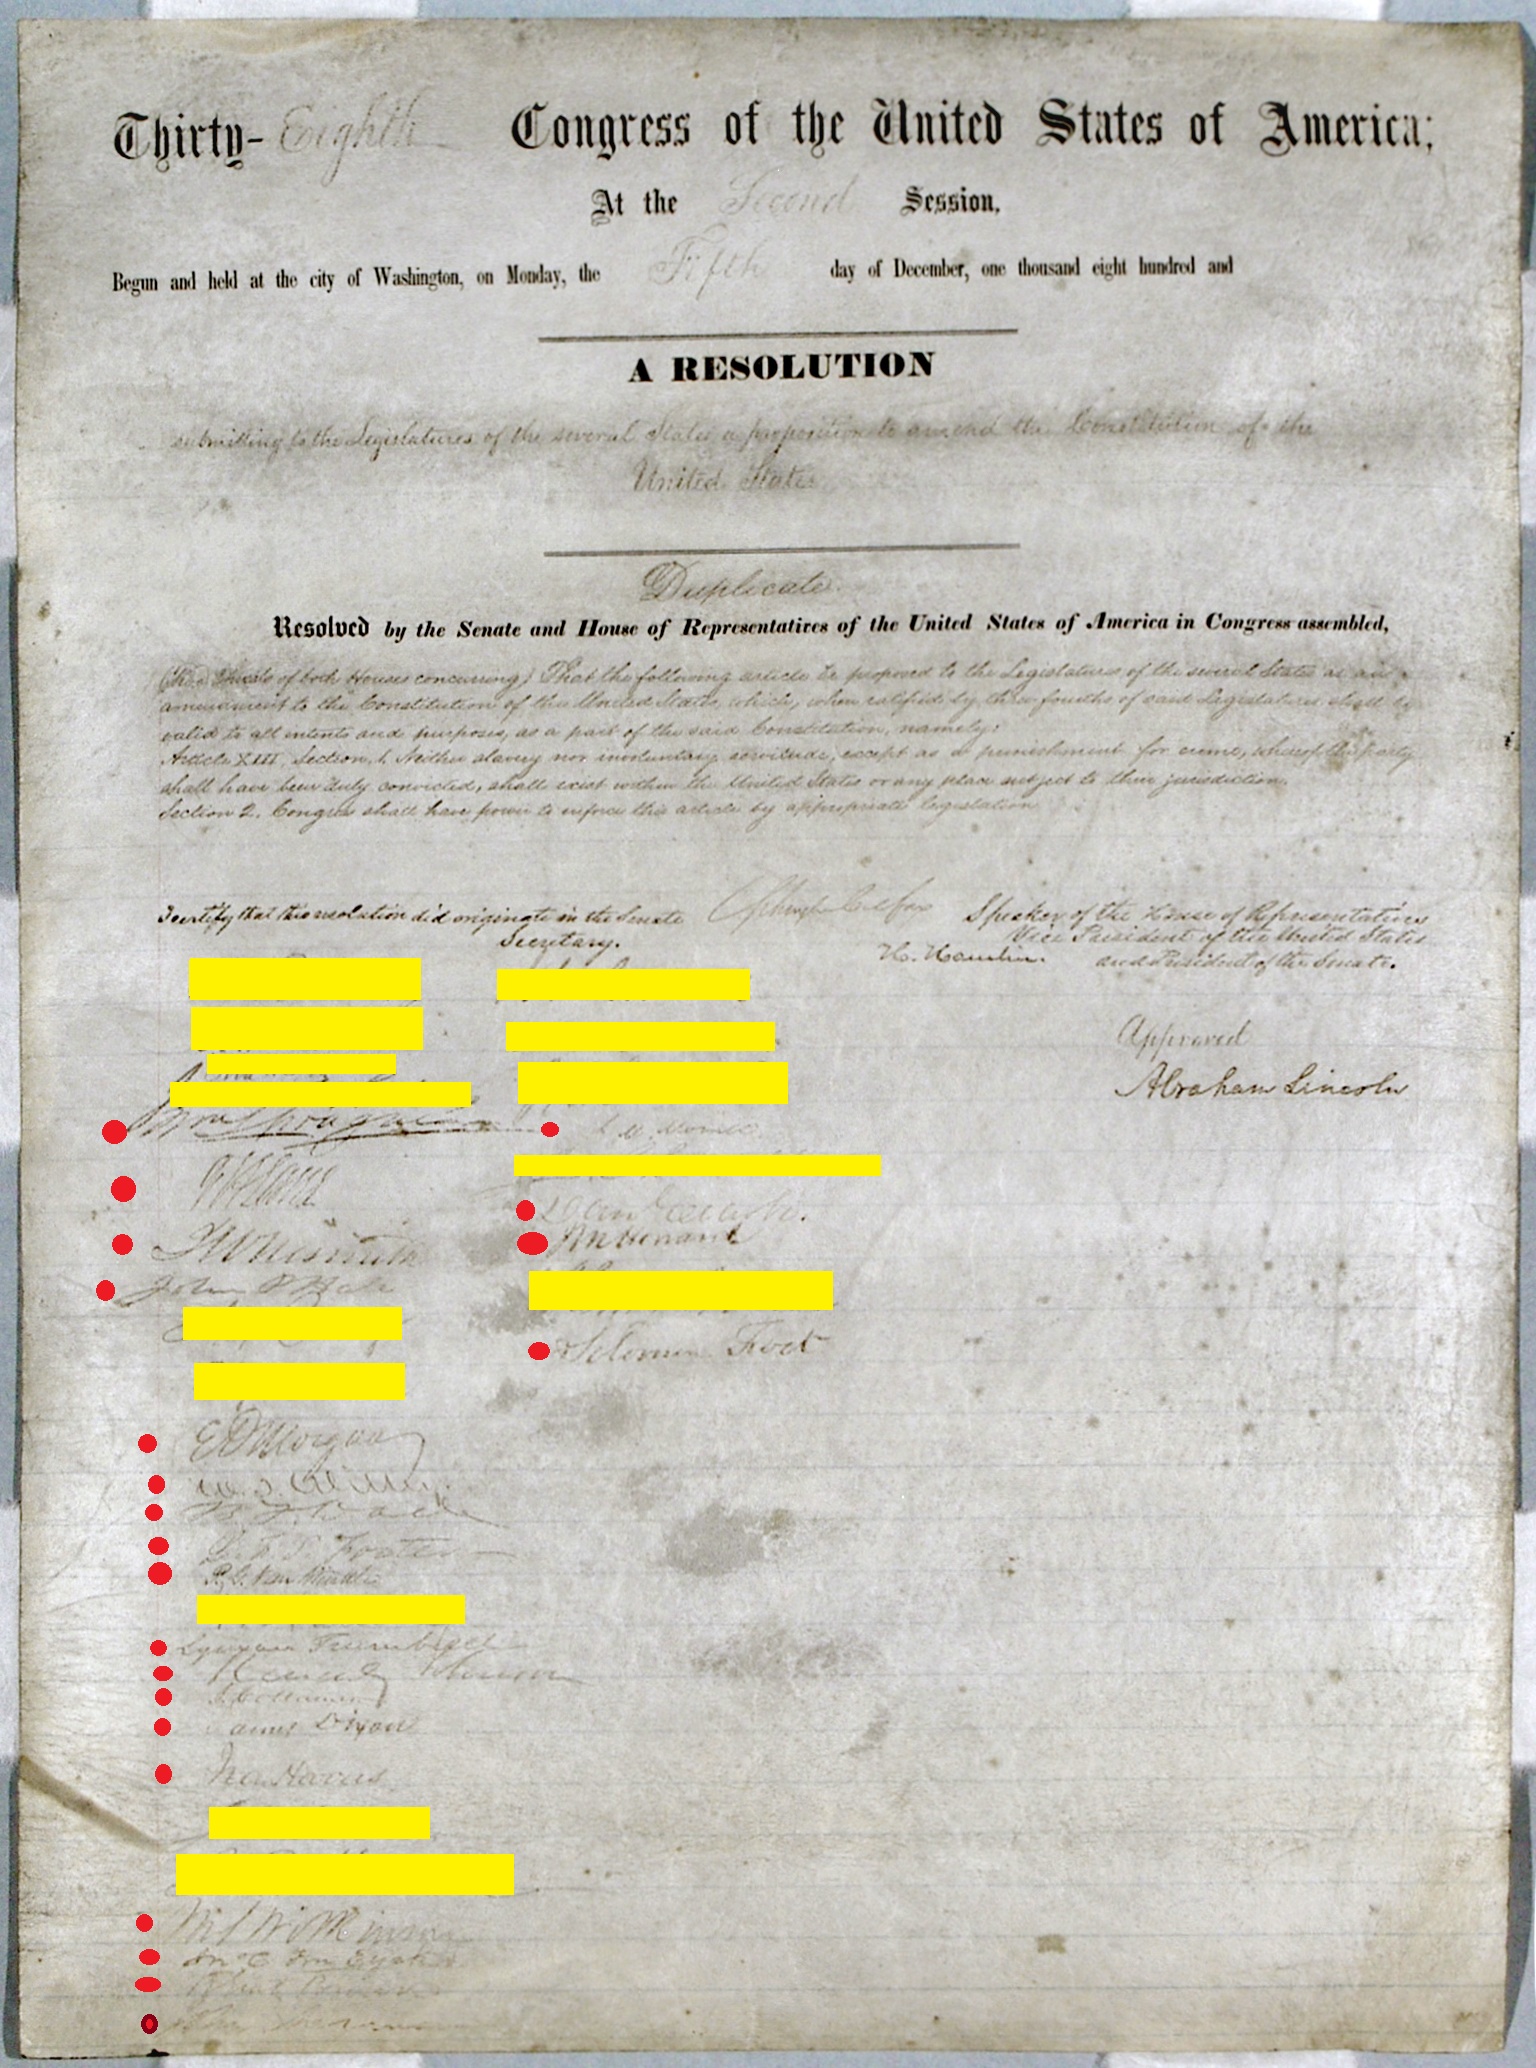 Thirty-Eighth Congress of the United States of America;
At the Second Session,
Begun and held at the city of Washington, on Monday, the Fifth day of December, one thousand eight hundred and
A RESOLUTION
submitting to the Legislatures of the several States a proposition to amend the Constitution of the
United States
Duplicate
Resolved by the Senate and House of Representatives of the United States of America in Congress assembled,
(two thirds of both Houses concurring) That the following article be proposed to the Legislatures of the several States as an
amendment to the Constitution of the United States, which, when ratified by three fourths of said Legislatures shall be
valid to all intents and purposes, as a part of the said Constitution, namely:
Article XIII, Section 1. Neither slavery nor involuntary servitude, except as a punishment for crime, whereof the party
shall have been duly convicted, shall exist within the United States or any place subject to their jurisdiction.
Section 2. Congress shall have power to enforce this article by appropriate legislation
I certify that this resolution did originate in the Senate
Secretary.
Schuyler Colfax
Speaker of the House of Representatives
Vice President of the United States
H. Hamlin.
and President of the Senate.
Approved
Abraham Lincoln
Wm Sprague
J W Nesmith
John P Hale
E D Morgan
B. F. Wade
L. F. S. Foster
P. G. Van Winkle
Lyman Trumbull
Henry Wilson
J. Collamer
James Dixon
Ira Harris
M S Wilkinson
J M Howard
Solomon Foot